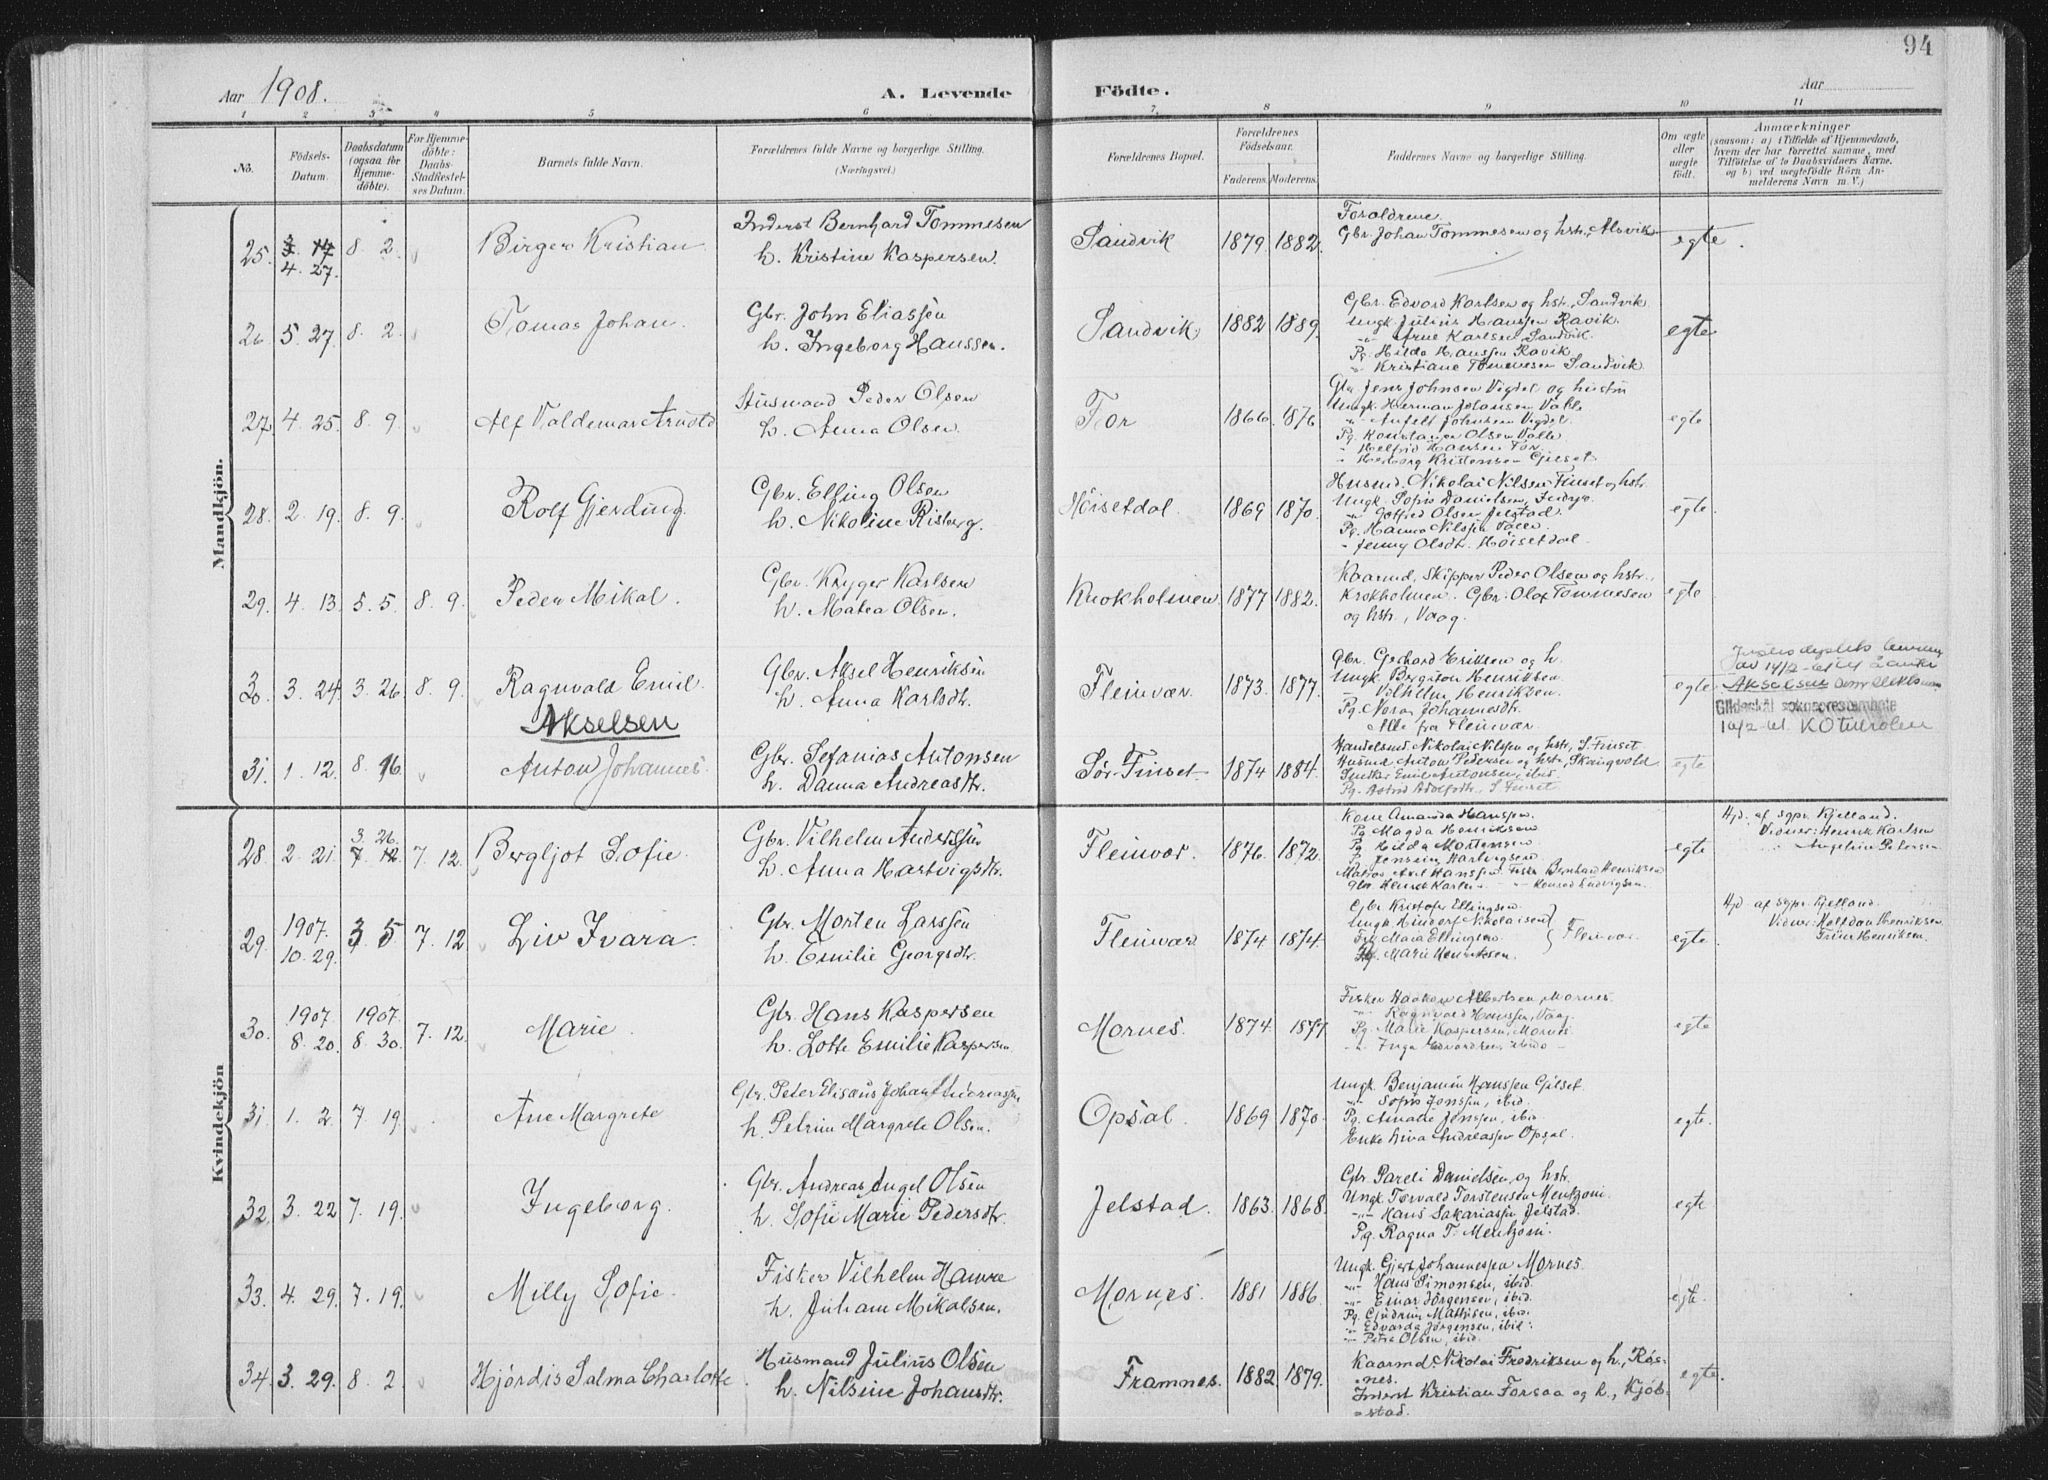 94
Aar 1908.
A. Levende Födte.
Aar
1 2 3 4 5 6 7. 8 9 10 11
No.
Födsels-Datum.
Daabsdatum (ogsaa for Hjemme-döbte).
For Hjemme-döbte: Daabs-Stadfæstel-ses Datum.
Barnets fulde Navn.
Forældrenes fulde Navne og borgerlige Stilling. (Næringsvei.)
Forældrenes Bopæl.
Forældrenes Födselsaar.
Faderens. Moderens.
Faddernes Navne og borgerlige Stilling.
Om ægte eller uægte födt.
Anmærkninger
(saasom: a) i Tilfælde af Hjemmedaab, hvem der har forrettet samme, med Tilföielse af to Daabsvidners Navne. og b) ved uægtefödte Börn Anmelderens Navn m. V.)
Mandkjön.
25. 4. 27. 8. 2. Birger Kristian
Inderst Bernhard Tommesen
h. Kristine Kaspersen.
Sandvik 1879. 1882.
Foraldrene.
Gbr. Johan Tommesen og hstr., Alsvik
egte.
26 5. 27. 8. 2. Tomas Johan.
Gbr. John Eliassen
h. Ingeborg Hanssen.
Sandvik 1882 1889.
Gbr. Edvard Karlsen og hstr., Sandvik
Ungk. Julius Hanssen Ravik.
Arne Karlsen Sandvik.
Pg. Hilda Hanssen Ravik
" Kristiane Tommesen Sandvik
egte
27. 4. 25. 8. 9. Alf Valdemar Arndtd
Husmand Peder Olsen
h. Anna Olsen.
For 1866. 1876
Gbr. Jens Johnsen Vigdel og hustru
Ungk. Herman Johansen Valle
" Anfelt Johnsen Vigdel.
Pg. Konstanse Olsen Valle
" Helfrid Hansen For.
" Herborg Kristensen Gilset
egte
28. 2. 19. 8. 9. Rolf Gjerding.
Gbr. Elling Olsen
h. Nikoline Risberg.
Höisetdal. 1869 1870.
Husmd. Nikolai Nilsen Finset og hstr.
Ungk. Sofus Danielsen, Indyr.
" Gotfred Olsen Jelstad.
Pg. Hanna Nilssen Valle.
" Jenny Olsdtr. Höisetdal.
egte.
29. 4. 13. 5. 5. 8. 9. Peder Mikal.
Gbr. Kryger Karlsen
h. Matea Olsen.
Knokholmen 1877 1882.
Kaarmd, Skipper Peder Olsen og hstr.,
Krokholmen. Gbr. Olaf Tommesen
og hstr., Vaag.
egte
30. 3. 24. 3. 26. 8. 9. Ragnvald Emil.
Akselsen
Gbr. Aksel Henriksen
h. Anna Karlsdtr.
Fleinvær. 1873. 1877.
Gbr. Gerhard Eriksen og h.
Ungk. Bergiton Henriksen.
" Vilhelm Henriksen.
Pg. Nora Johannesdtr.
Alle fra Fleinvær.
egte
Akselsen
Gildeskål sokneprestembete
31. 1. 12. 8. 16. Anton Johannes.
Gbr. Sefanias Antonsen
h. Danna Andreasdtr.
Sör-Finset 1874 1884.
Handelsmd Nikolai Nilsen og hstr, S. Finset
Husmd Anton Pedersen og hstr., Skaugvold
Snekker Emil Antonsen, ibid.
Pg. Astrid Adolfsdtr., S. Finset
egte
Kvindekjön
28. 2. 21. 3. 26. 7. 12. Bergljot Sofie.
Gbr. Vilhelm Anderssen
h. Anna Hartvigsdtr.
Fleinvær. 1876. 1872.
Kone Amanda Hanssen.
Pg. Magda Henriksen
Pg. Hilda Mortensen
Matros Axel Hanssen. Fisker Bernhard Henriksen
egte
Hjd. af sgpr. Kjelland.
Vidner: Henrik Karlsen
29. 1907. 10. 29. 3. 5 7. 12 Liv Ivara.
Gbr. Morten Larssen
h. Emilie Georgsdtr.
Fleinvær 1874 1874.
Gbr. Kristofer Ellingsen.
Frk. Maia Ellingsen.
Pg. Marie Henriksen.
Fleinvær
egte.
Hjd af sgpr. Kjelland.
Vidner: Halfdan Henriksen
Trine Henriksen.
30. 1907. 8. 20. 1907. 8. 30. 7. 12. Marie.
Gbr. Hans Kaspersen
h. Lotte Emilie Kaspersen.
Mornes. 1874. 1877
Fisker Haakon Albertsen, Mornes.
" Ragnvald Hanssen, Vaag.
Pg. Marie Kaspersen, Mornes
" Inga Edvardsen ibid.
egte
31. 1. 2. 7. 19. Ane Margrete
Gbr. Peter Elisæus Johan Andreassen
h. Petrine Margrete Olsen.
Opsal. 1869 1870.
Ungk. Benjamin Hanssen Gilset.
" Sofus Jonssen, ibid.
Pg. Amalie Jonssen, ibid.
Enke Liva Andreassen Opsal.
egte.
32. 3. 22 7. 19. Ingeborg.
Gbr. Andreas Angel Olsen
h. Sofie Marie Pedersdtr.
Jelstad. 1863. 1868.
Gbr. Pareli Danielsen, og hstr.
Ungk. Torvald Torstensen Mentzoni.
" Hans Sakariassen Jelstad.
Pg. Ragna T. Mentzoni.
egte
33. 4. 29. 7. 19. Milly Sofie.
Fisker Vilhelm Hamre
h. Juham Mikalsen.
Mornes. 1881 1886.
Ungk. Gjert Johannessen Mornes.
" Hans Simonsen, ibid.
" Einar Jörgensen, ibid.
Pg. Gudrun Mathisen, ibid.
" Edvarda Jörgensen, ibid.
" Petra Olsen, ibid.
egte.
34. 3. 29. 8. 2. Hjördis Salma Charlotte
Husmand Julius Olsen
h. Nilsine Johansdtr.
Framnes. 1882 1879.
Kaarmd. Nikolai Fredriksen og h., Røs-
nes.
Inderst Kristian Forsaa og h., Kjöb-
stad.
egte.